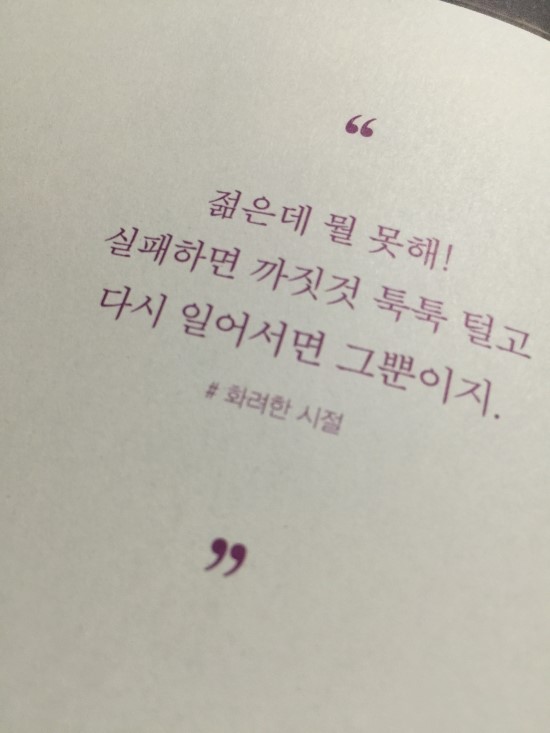 “
젊은데 뭘 못해!
실패하면 까짓것 툭툭 털고
다시 일어서면 그뿐이지.
# 화려한 시절
”